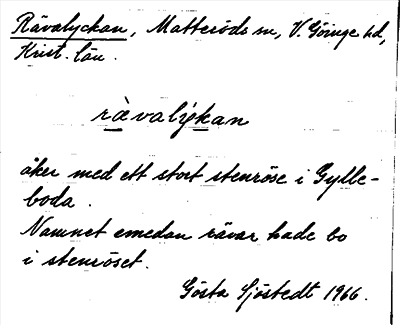 Rävalyckan, Matteröds sn, V. Göinge hd,
Krist. län.
rävalýkan
åker med ett stort stenröse i Gylle-
boda.
Namnet emedan rävar hade bo
i stenröset.
Gösta Sjöstedt 1966.